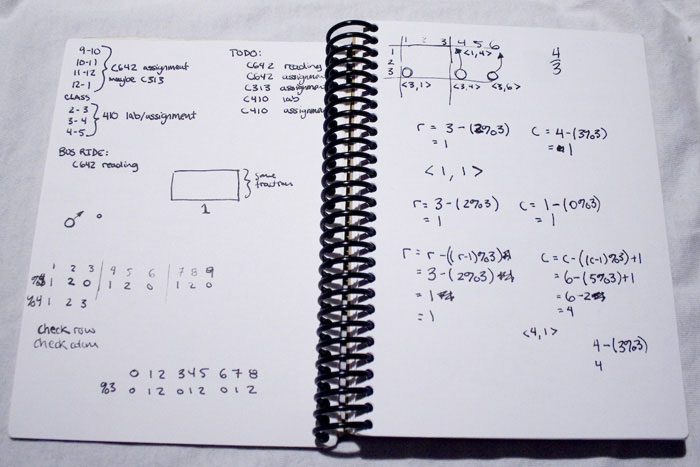 9-10
10-11
11-12
12-1
C642 assignment
maybe C313
CLASS
2-3
3-4
4-5
410 lab/assignment
BUS RIDE:
C642 reading
TODO:
C642 reading
C642 assignment
C313 assignment
C410 lab
C410 assignment
some
fraction
1
1 2 3 4 5 6 7 8 9
%3 1 2 0 1 2 0 1 2 0
%4 1 2 3
check row
check column
0 1 2 3 4 5 6 7 8
%3 0 1 2 0 1 2 0 1 2
1 2 3 4 5 6
1 <1,4>
2
3
<3,1> <3,4> <3,6>
4
3
r = 3-(2%3)
= 1
c = 4-(3%3)
= 1
<1,1>
r = 3-(2%3)
= 1
c = 1-(0%3)
= 1
r = r-((r-1)%3)
= 3-(2%3)
= 1
= 1
c = c-((c-1)%3)+1
= 6-(5%3)+1
= 6-2
= 4
<4,1>
4-(3%3)
4